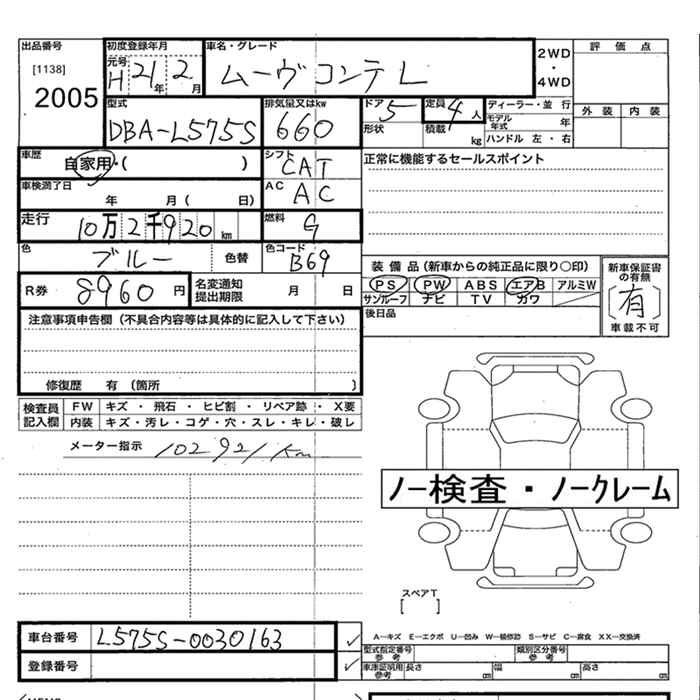 出品番号 [1138] 2005
初度登録年月 元号 H 21年 2月
車名・グレード ムーヴコンテL
2WD・4WD
評価点
外装 内装
型式 DBA-L575S
排気量又はkw 660
ドア 5 形状
定員 4人 積載 kg
ディーラー・並行
モデル年式 年
ハンドル 左・右
車歴 自家用・( )
シフト CAT
正常に機能するセールスポイント
車検満了日 年 月( 日)
AC AC
走行 10万2千920km
燃料 G
色 ブルー 色替
色コード B69
装備品(新車からの純正品に限り○印)
PS PW ABS エアB アルミW
サンルーフ ナビ TV カワ
新車保証書の有無 〔有〕 車載不可
R券 8960円
名変通知提出期限 月 日
後日品
注意事項申告欄(不具合内容等は具体的に記入して下さい)
修復歴 有 〔箇所 〕
検査員記入欄
FW キズ・飛石・ヒビ割・リペア跡・X要
内装 キズ・汚レ・コゲ・穴・スレ・キレ・破レ
メーター指示 102921km
ノー検査・ノークレーム
スペアT
[ ]
車台番号 L575S-0030163 ✓
登録番号 ✓
A-キズ E-エクボ U-凹み W-補修跡 S-サビ C-腐食 XX-交換済
型式指定番号参考 類別区分番号参考
車庫証明用参考 長さ cm 幅 cm 高さ cm